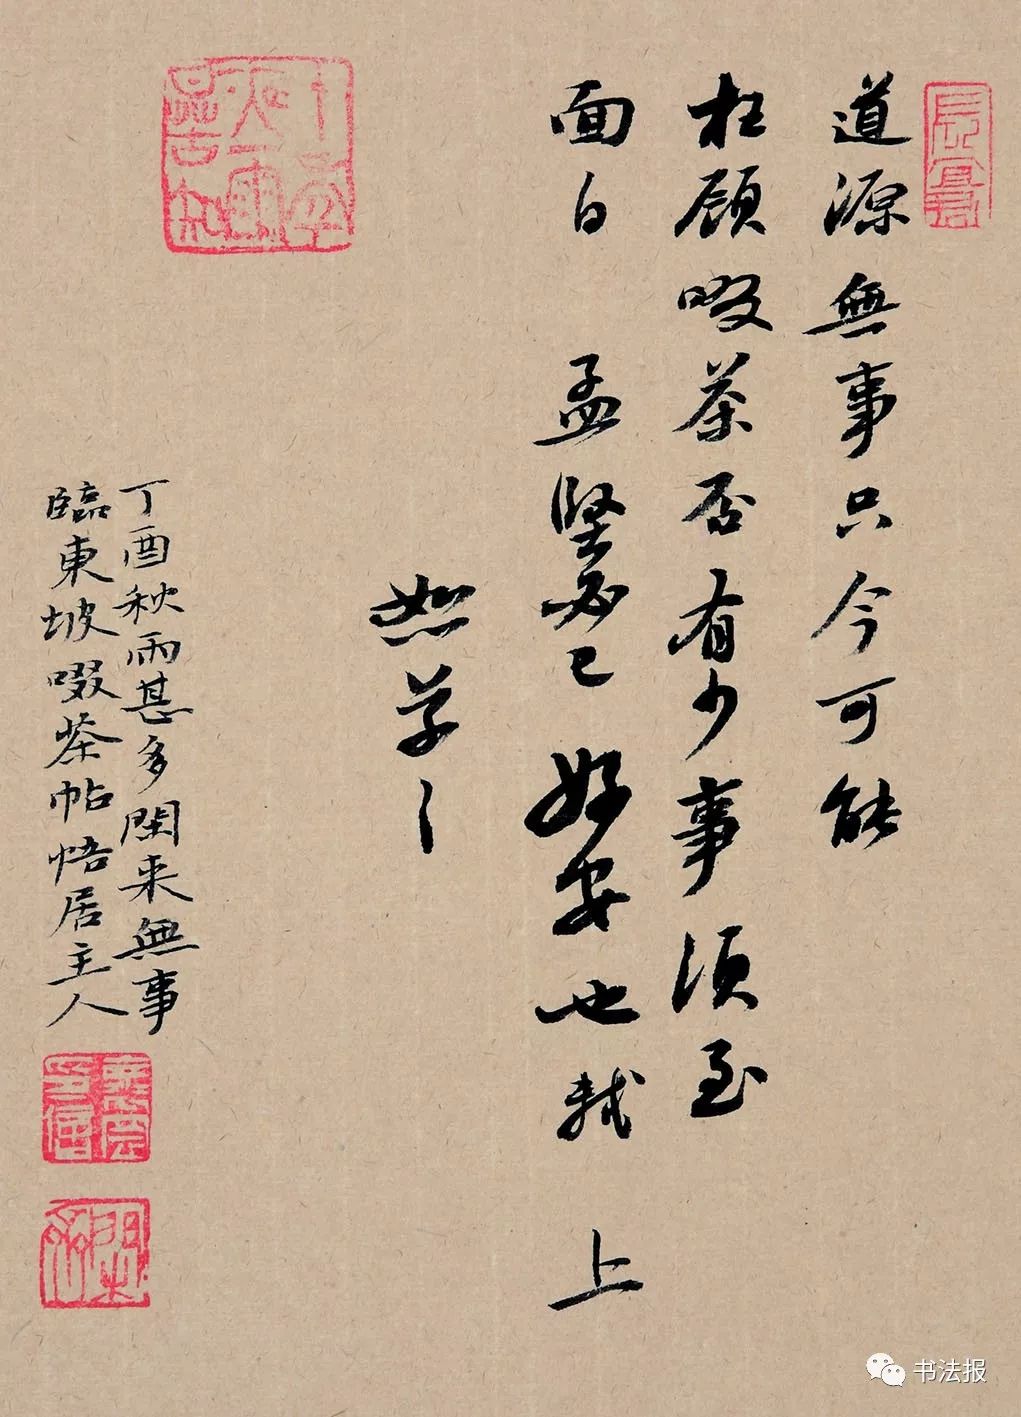 道源無事只今可能
枉顾啜茶否有少事须至
面白 孟坚必已好安也轼 上
恕草〻
丁酉秋雨甚多閑来無事
臨東坡啜茶帖悟居主人
书法报